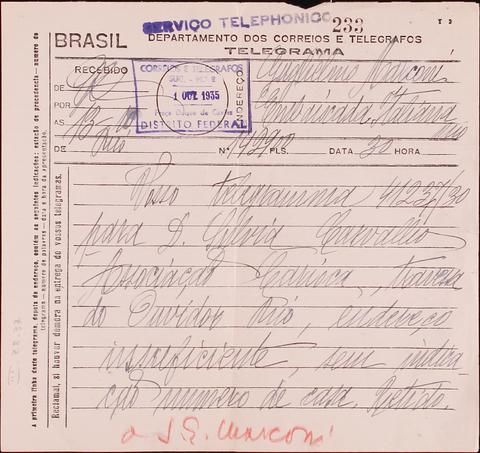 SERVIÇO TELEPHONICO 233
T 3
BRASIL DEPARTAMENTO DOS CORREIOS E TELEGRAFOS
TELEGRAMA
RECEBIDO
DE
POR
AS
DE
CORREIOS E TELEGRAFOS
1 OUT 1935
Praça Duque de Caxias
DISTRITO FEDERAL
ENDEREÇO
Guglielmo Marconi
Embaixada Italiana
Rio
Nº PLS. DATA 30 HORA
Vosso telegramma 41237/30
para D. Sylvia Carvalho
Associação Carioca, travessa
do Ouvidor Rio, endereço
insuficiente, sem indica-
ção numero de casa. Retido.
a S. E. Marconi
A primeira linha deste telegrama, depois do endereço, contém as seguintes indicações: estação de procedencia — numero do
telegrama — numero de palavras — data e hora da apresentação.
Reclamai, si houver demora na entrega de vossos telegramas.